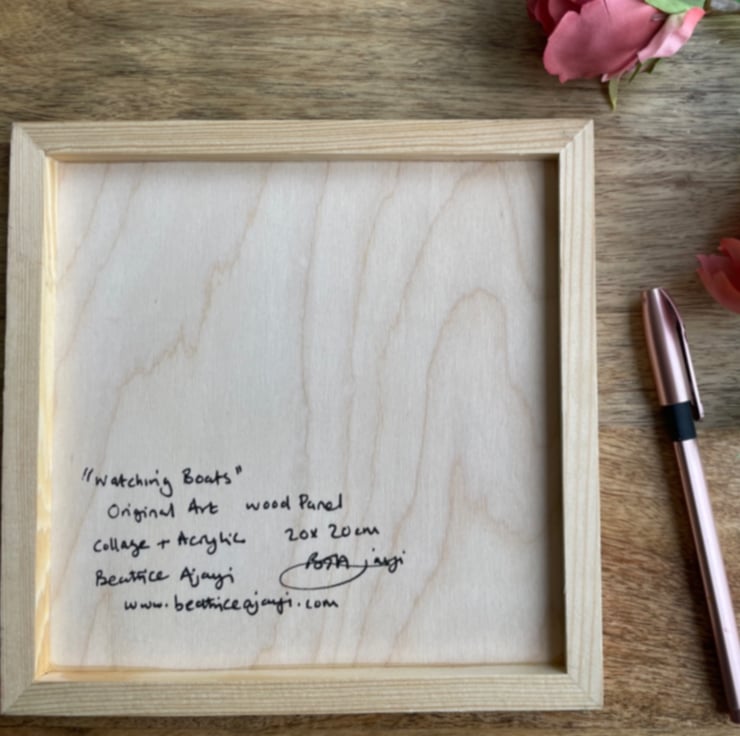 "Watching Boats"
Original Art wood Panel
Collage + Acrylic 20x20cm
Beatrice Ajayi
www.beatriceajayi.com